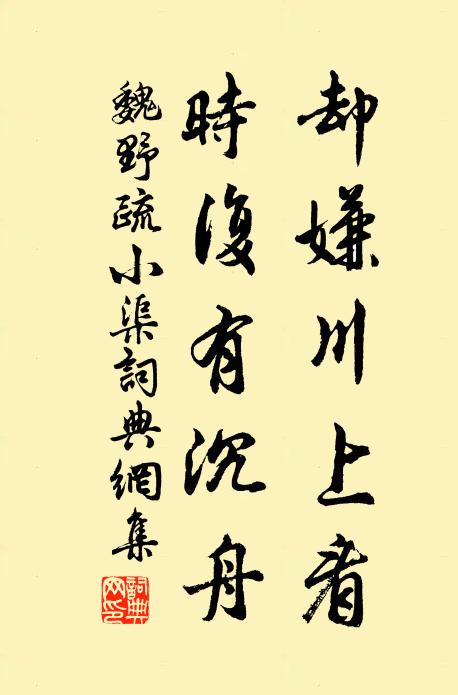 却嫌川上者
時復有沉舟
魏野疏小渠詞典網集
詞典网印